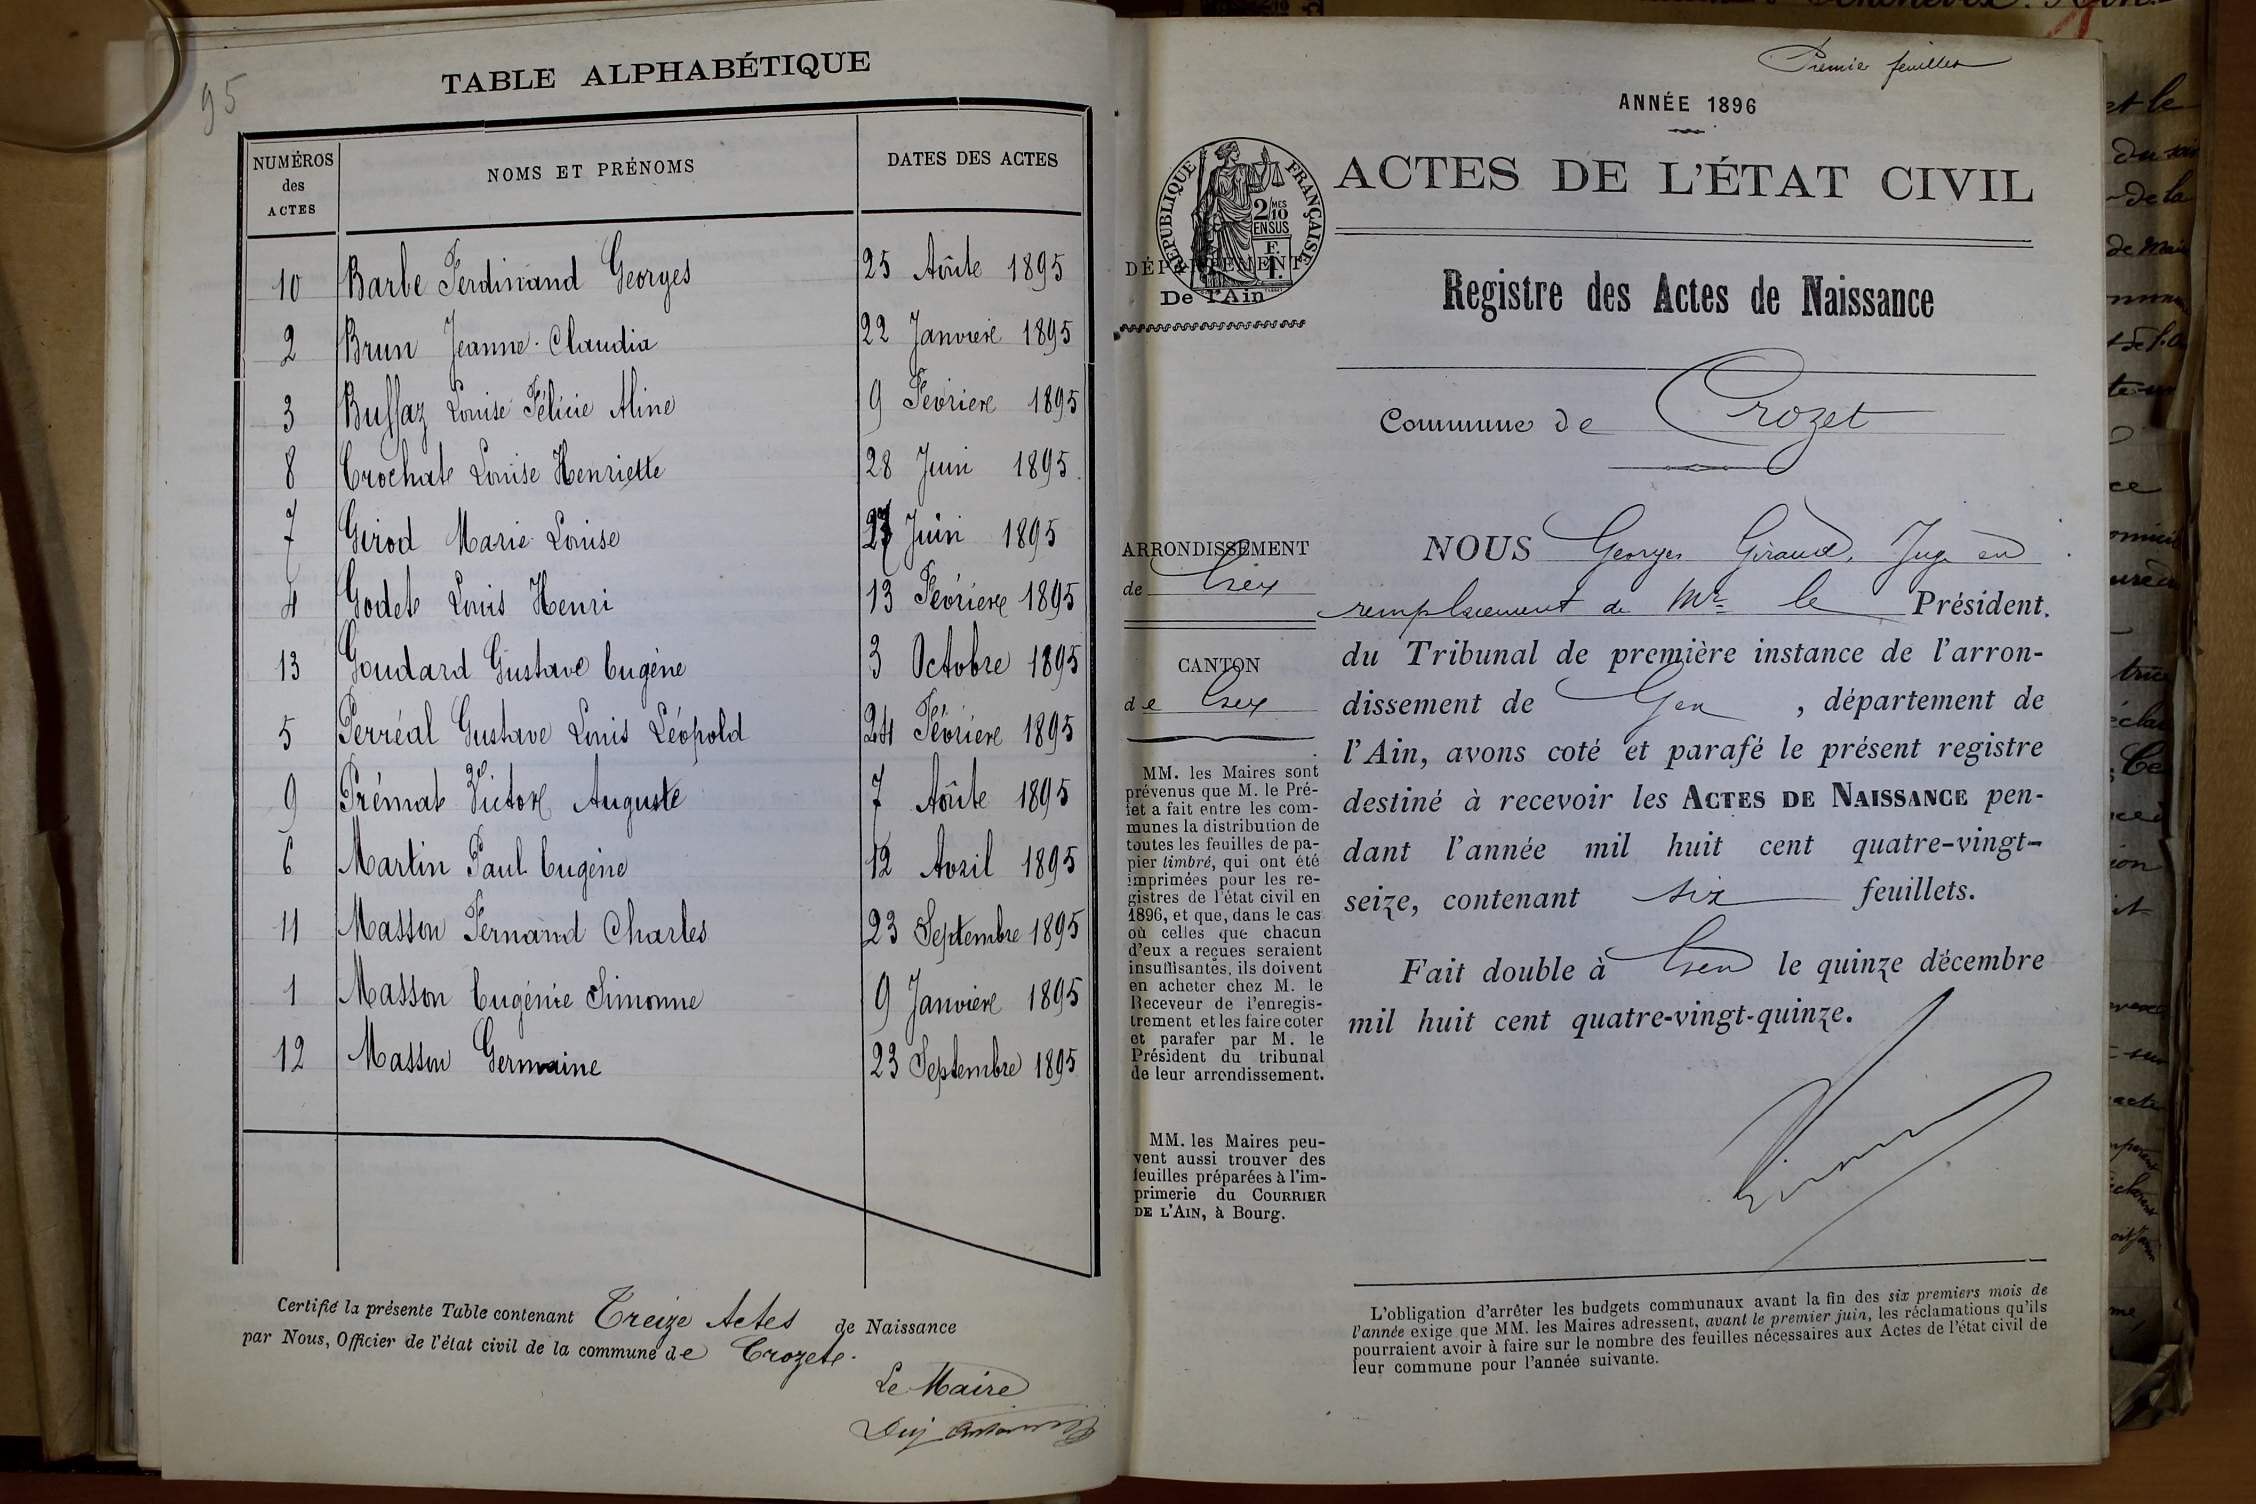 95
TABLE ALPHABÉTIQUE
NUMÉROS des ACTES
NOMS ET PRÉNOMS
DATES DES ACTES
10 Barbe Ferdinand Georges 25 Aôute 1895
2 Brun Jeanne Claudia 22 Janviere 1895
3 Buffaz Louise Félicie Aline 9 Févriere 1895
8 Crochate Louise Henriette 28 Juin 1895
7 Girod Marie Louise 27 Juin 1895
4 Godete Louis Henri 13 Févriere 1895
13 Goudard Gustave Eugène 3 Octobre 1895
5 Perréal Gustave Louis Léopold 24 Févriere 1895
9 Prémate Victore Auguste 7 Aôute 1895
6 Martin Paul Eugène 12 Avril 1895
11 Masson Fernand Charles 23 Septembre 1895
1 Masson Eugénie Simonne 9 Janviere 1895
12 Masson Germaine 23 Septembre 1895
Certifié la présente Table contenant Treize Actes de Naissance
par Nous, Officier de l'état civil de la commune de Crozete.
Le Maire
Premier feuillet
ANNÉE 1896
ACTES DE L'ÉTAT CIVIL
RÉPUBLIQUE FRANÇAISE
2/10 MES
EN SUS
DÉPARTEMENT
De l'Ain
Registre des Actes de Naissance
Commune de Crozet
ARRONDISSEMENT
de Gex
CANTON
de Gex
MM. les Maires sont
prévenus que M. le Pré-
fet a fait entre les com-
munes la distribution de
toutes les feuilles de pa-
pier timbré, qui ont été
imprimées pour les re-
gistres de l'état civil en
1896, et que, dans le cas
où celles que chacun
d'eux a reçues seraient
insuffisantes, ils doivent
en acheter chez M. le
Receveur de l'enregis-
trement et les faire coter
et parafer par M. le
Président du tribunal
de leur arrondissement.
MM. les Maires peu-
vent aussi trouver des
feuilles préparées à l'im-
primerie du COURRIER
DE L'AIN, à Bourg.
NOUS Georges Giraud, Juge en
remplacement de Mr le Président.
du Tribunal de première instance de l'arron-
dissement de Gex, département de
l'Ain, avons coté et parafé le présent registre
destiné à recevoir les ACTES DE NAISSANCE pen-
dant l'année mil huit cent quatre-vingt-
seize, contenant six feuillets.
Fait double à Gex le quinze décembre
mil huit cent quatre-vingt-quinze.
L'obligation d'arrêter les budgets communaux avant la fin des six premiers mois de
l'année exige que MM. les Maires adressent, avant le premier juin, les réclamations qu'ils
pourraient avoir à faire sur le nombre des feuilles nécessaires aux Actes de l'état civil de
leur commune pour l'année suivante.